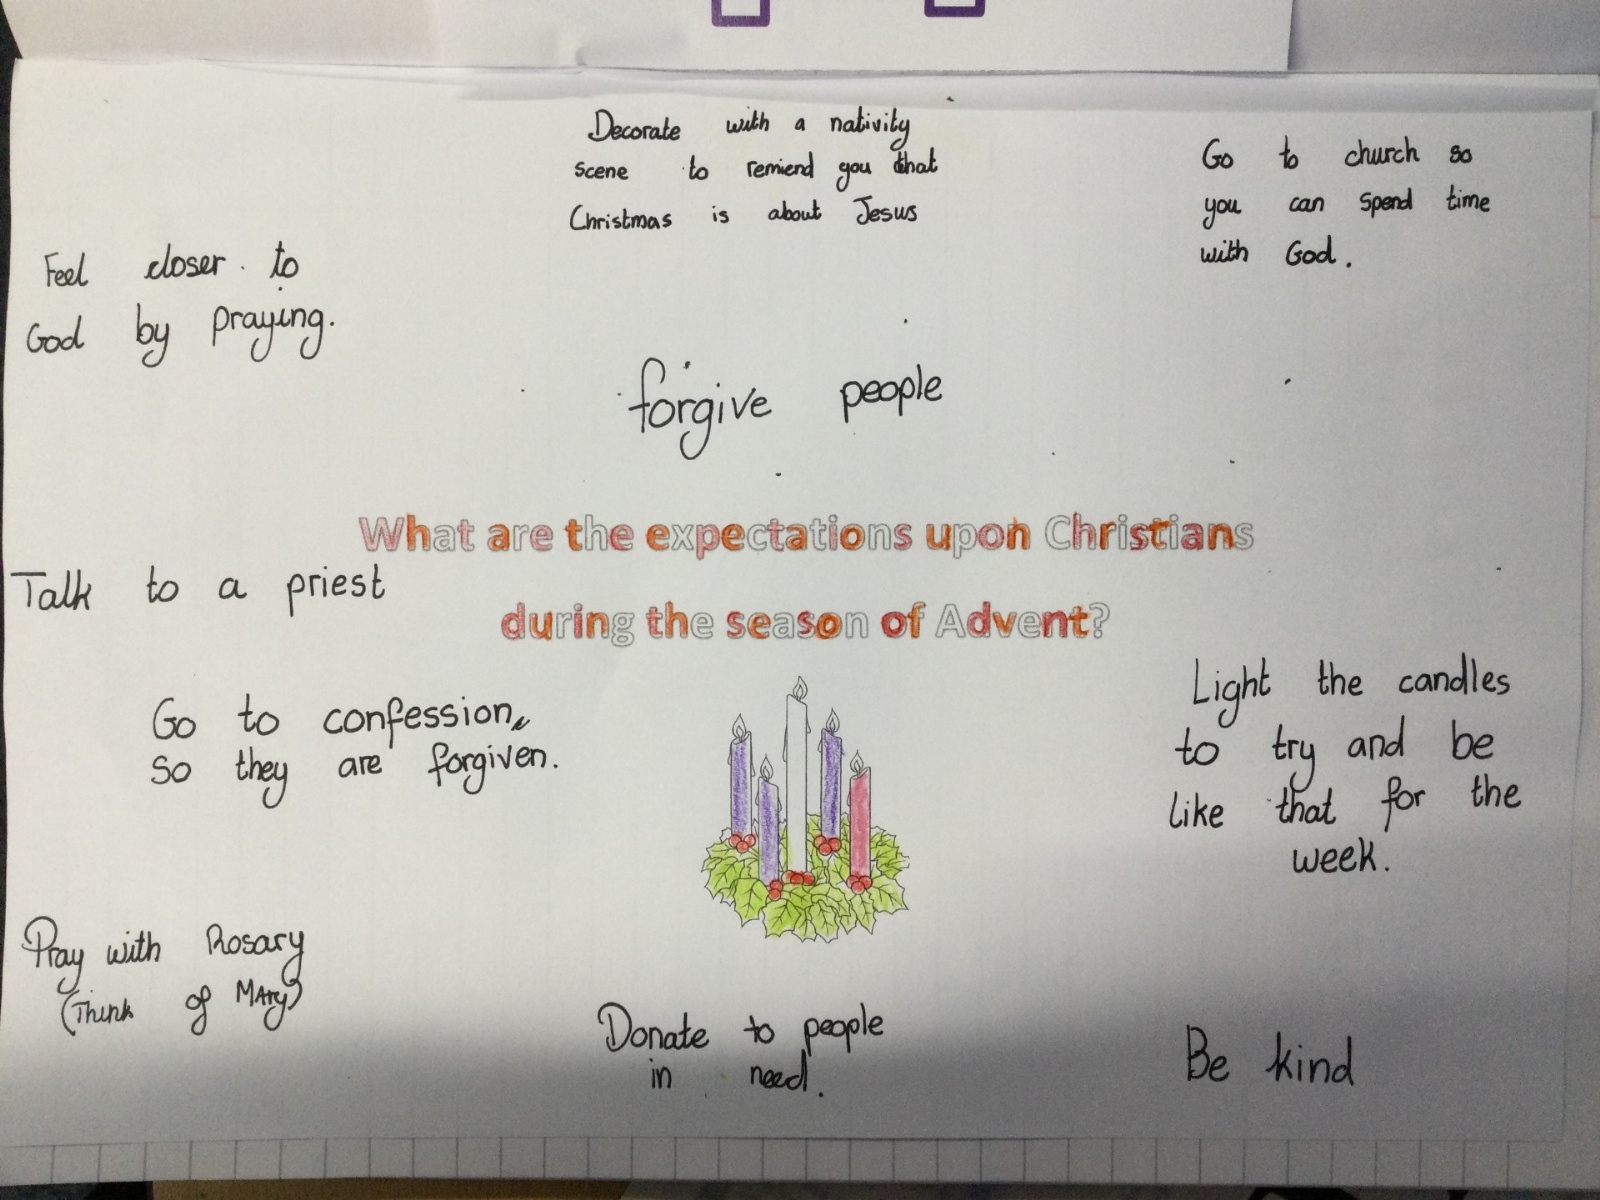 Decorate with a nativity
scene to remiend you that
Christmas is about Jesus
Go to church so
you can spend time
with God.
Feel closer to
God by praying.
forgive people
What are the expectations upon Christians
during the season of Advent?
Talk to a priest
Go to confession,
so they are forgiven.
Light the candles
to try and be
like that for the
week.
Pray with Rosary
(Think of MAry)
Donate to people
in need.
Be kind